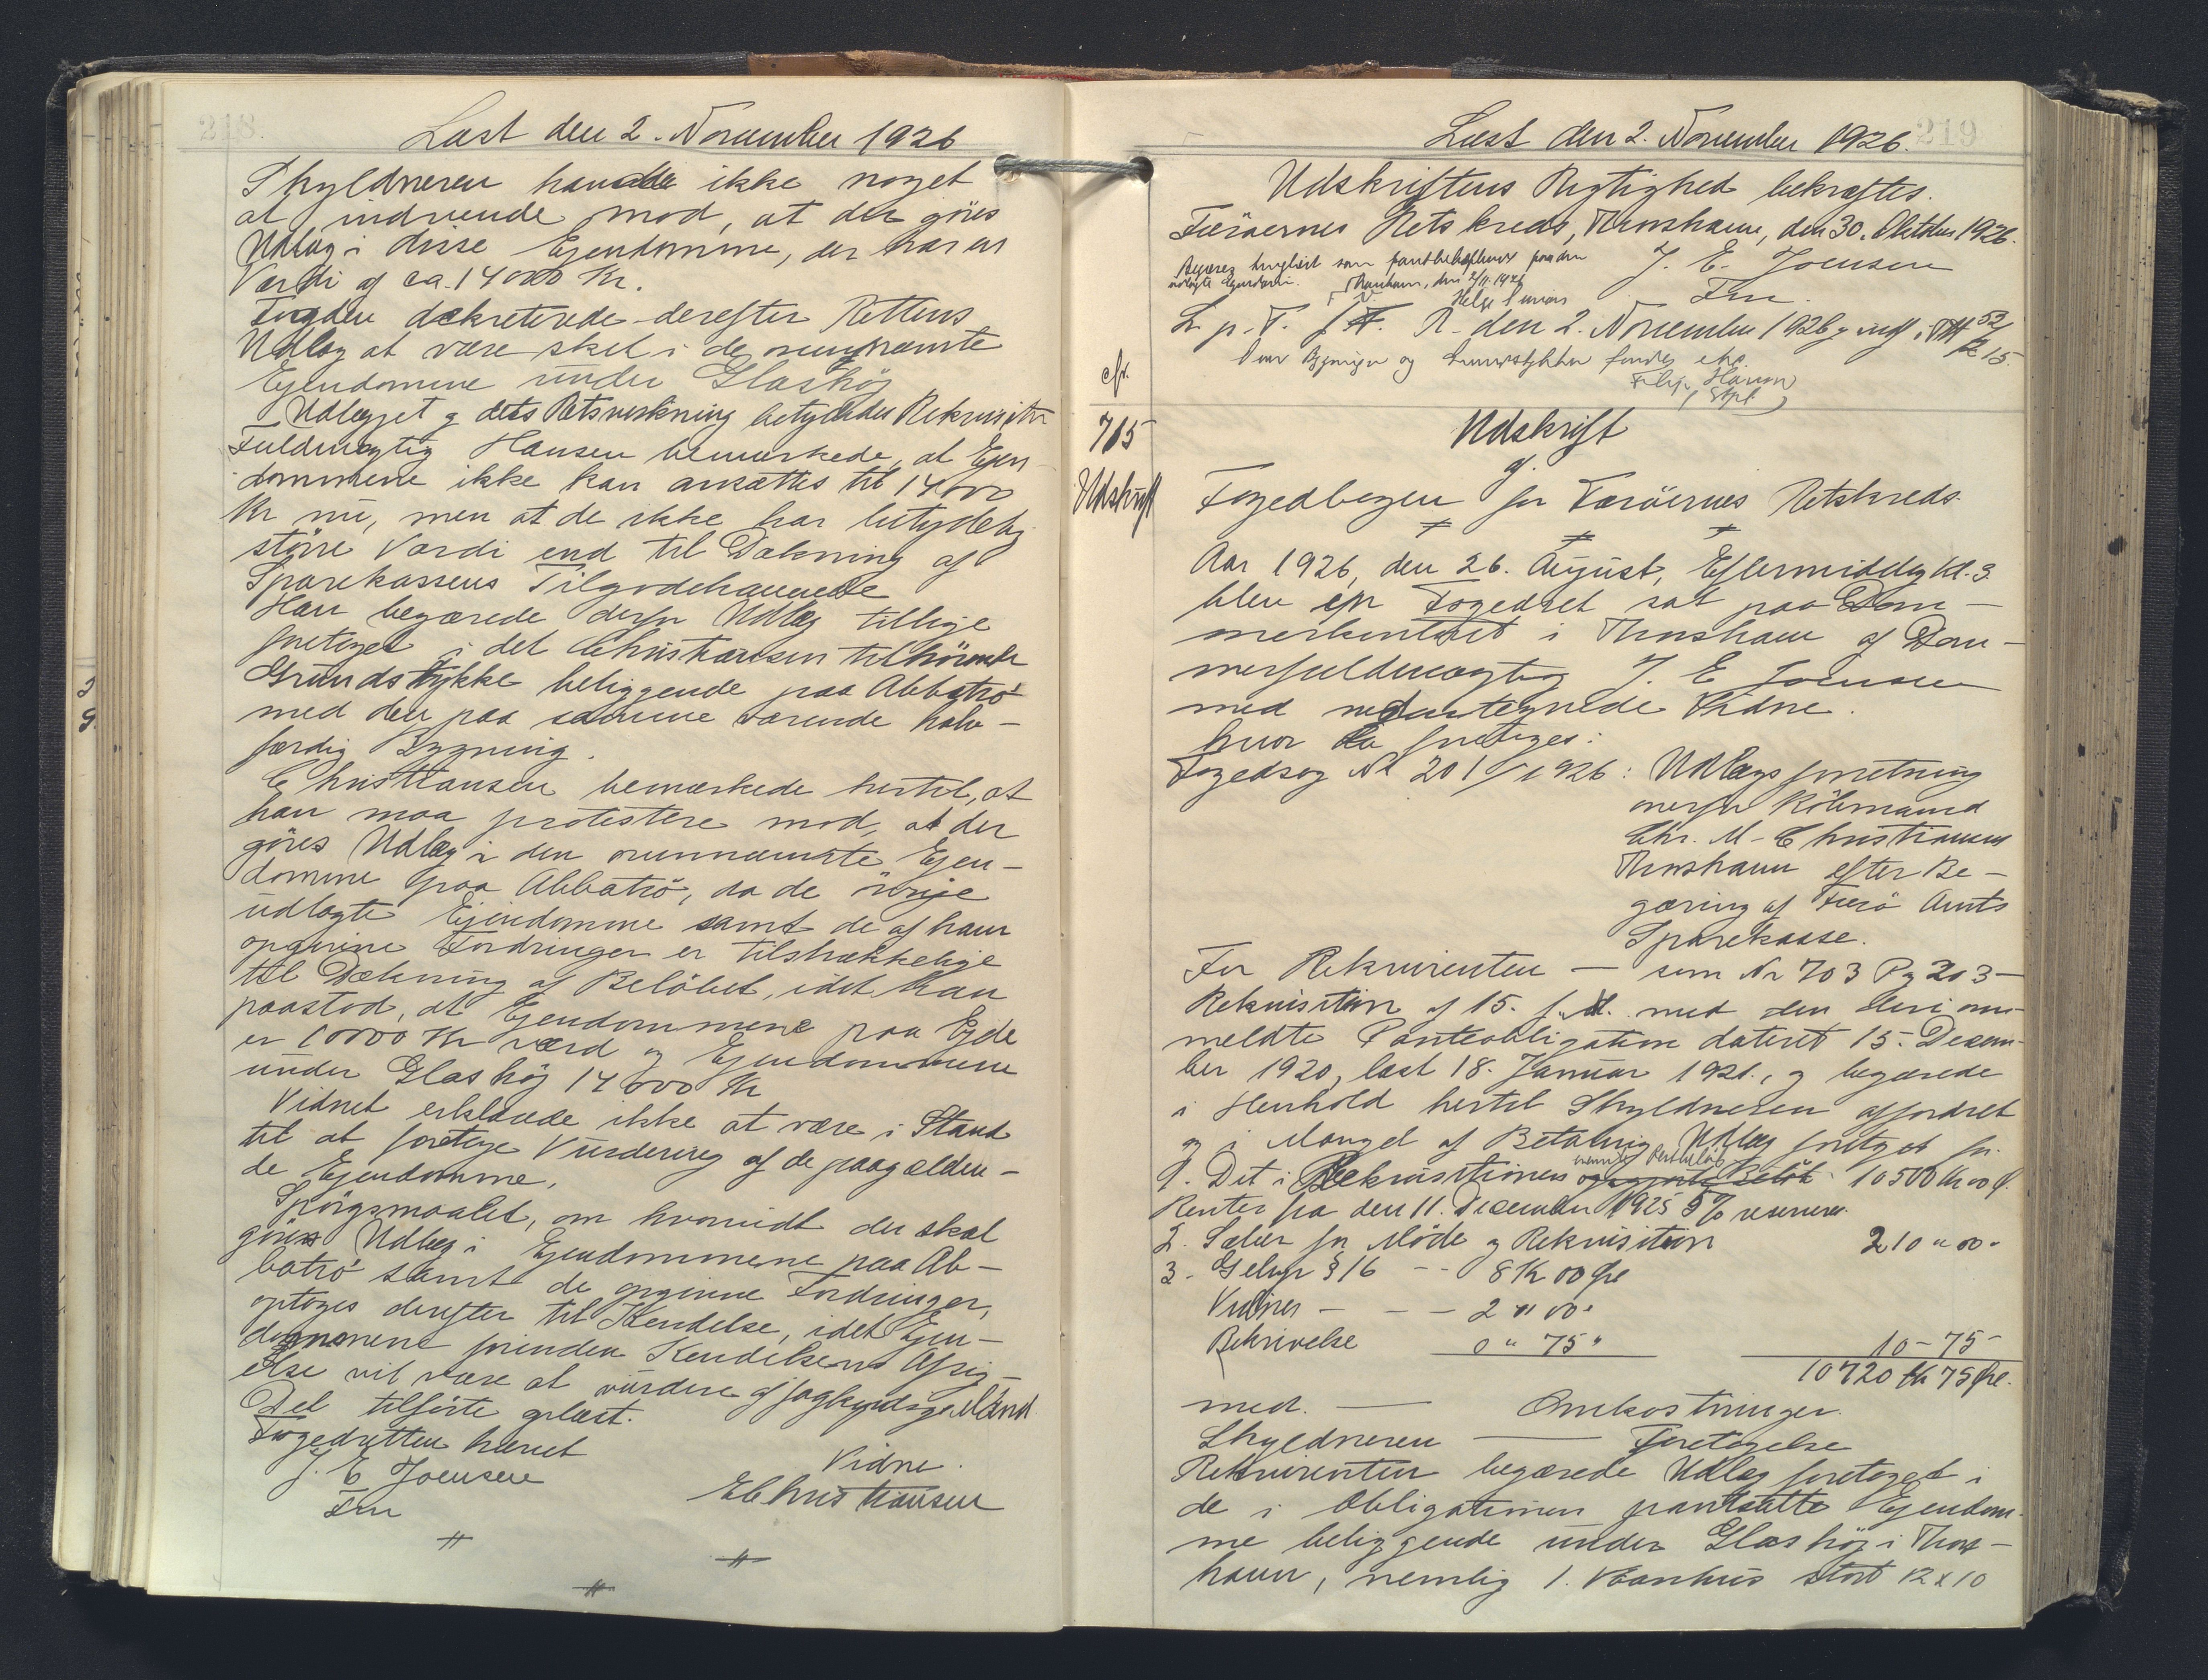 218.
Læst den 2. November 1926
Skyldneren havde ikke noget
at indvende mod, at der göres
Udlæg i disse Ejendomme, der har en
Værdi af ca. 14000 Kr.
Fogden dekreterede derefter Rettens
Udlæg at være sket i de ovennævnte
Ejendomme under Glashöj
Udlægget og dets Retsvirkning betydedes Rekvisitus
Fuldmægtig Hansen bemærkede, at Ejen-
dommene ikke kan ansættes til 14000
Kr nu, men at de ikke har betydelig
större Værdi end til Dækning af
Sparekassens Tilgodehavende
Han begærede derfor Udlæg tillige
foretaget i det Christiansen tilhörende
Grundstykke beliggende paa Abbatrö
med den paa samme værende halv-
færdig Bygning.
Christiansen bemærkede hertil, at
han maa protestere mod, at der
göres Udlæg i den ovennævnte Ejen-
domme paa Abbatrö, da de övrige
udlagte Ejendomme samt de af ham
opgivne Fordringer er tilstrækkelige
til Dækning af Belöbet, idet han
paastod, at Ejendommene paa Ejde
er 10000 Kr værd og Ejendommene
under Glashöj 14000 Kr
Vidnet erklærede ikke at være i Stand
til at foretage Vurdering af de paagælden-
de Ejendomme.
Spörgsmaalet, om hvorvidt der skal
göres Udlæg i Ejendommene paa Ab-
batrö samt de opgivne Fordringer,
optoges derefter til Kendelse, idet Ejen-
dommene forinden Kendelsens Afsig-
else vil være at vurdere af sagkyndige Mænd
Det tilförte oplæst.
Fogedretten hævet
J. E Joensen
Fm
Vidne.
E Christiansen
219
Læst den 2. November 1926.
Udskriftens Rigtighed bekræftes.
Færöernes Retskreds, Thorshavn, den 30. Oktober 1926.
Begæres tinglæst som pantebehæftende paa den
udlagte Ejendom. Thorshavn, den 2/11 1926
J. E. Joensen
Fm.
L. p. T. f. F. R. den 2. November 1926 og indf. i
15.
Om Bygninger og Grundstykker findes
cfr.
715
Udskrift
Udskrift
af
Fogedbogen for Færöernes Retskreds.
Aar 1926, den 26. August, Eftermiddag Kl. 3
blev en Fogedret sat paa Dom-
merkontoret i Thorshavn af Dom-
merfuldmægtig J. E Joensen
med undertegnede Vidne.
hvor da foretoges:
Fogedsag No 201/1926: Udlægsforretning
overfor Köbmand
Chr. M. Christiansen
Thorshavn efter Be-
gæring af Færö Amts
Sparekasse.
For Rekvirenten — som Nr 703 Pg 203 —
Rekvisition af 15. f. M. med den deri om-
meldte Panteobligation dateret 15. Decem-
ber 1920, læst 18. Januar 1921, og begærede
i Henhold hertil Skyldneren affordret
og i Mangel af Betaling Udlæg foretaget for.
1. Det i Rekvisitionen nævnte Restbelöb opgjorte Belöb 10500 Kr 00 ø.
Renter fra den 11. December 1925 5% reserveres
2. Salær for Möde og Rekvisition 210 " 00 -
3. Gebyr § 16 - - 8 Kr 00 Øre
Vidner - - - 2 " 00 "
Bekrivelse 0 " 75 " 10 - 75 -
10720 Kr 75 Øre.
med. — Omkostninger.
Skyldneren — Foretagelse
Rekvirenten begærede Udlæg foretaget i
de i Obligationen pantsatte Ejendom-
me beliggende under Glashöj i Thors-
havn, nemlig 1. Vaanhus stort 12 x 10